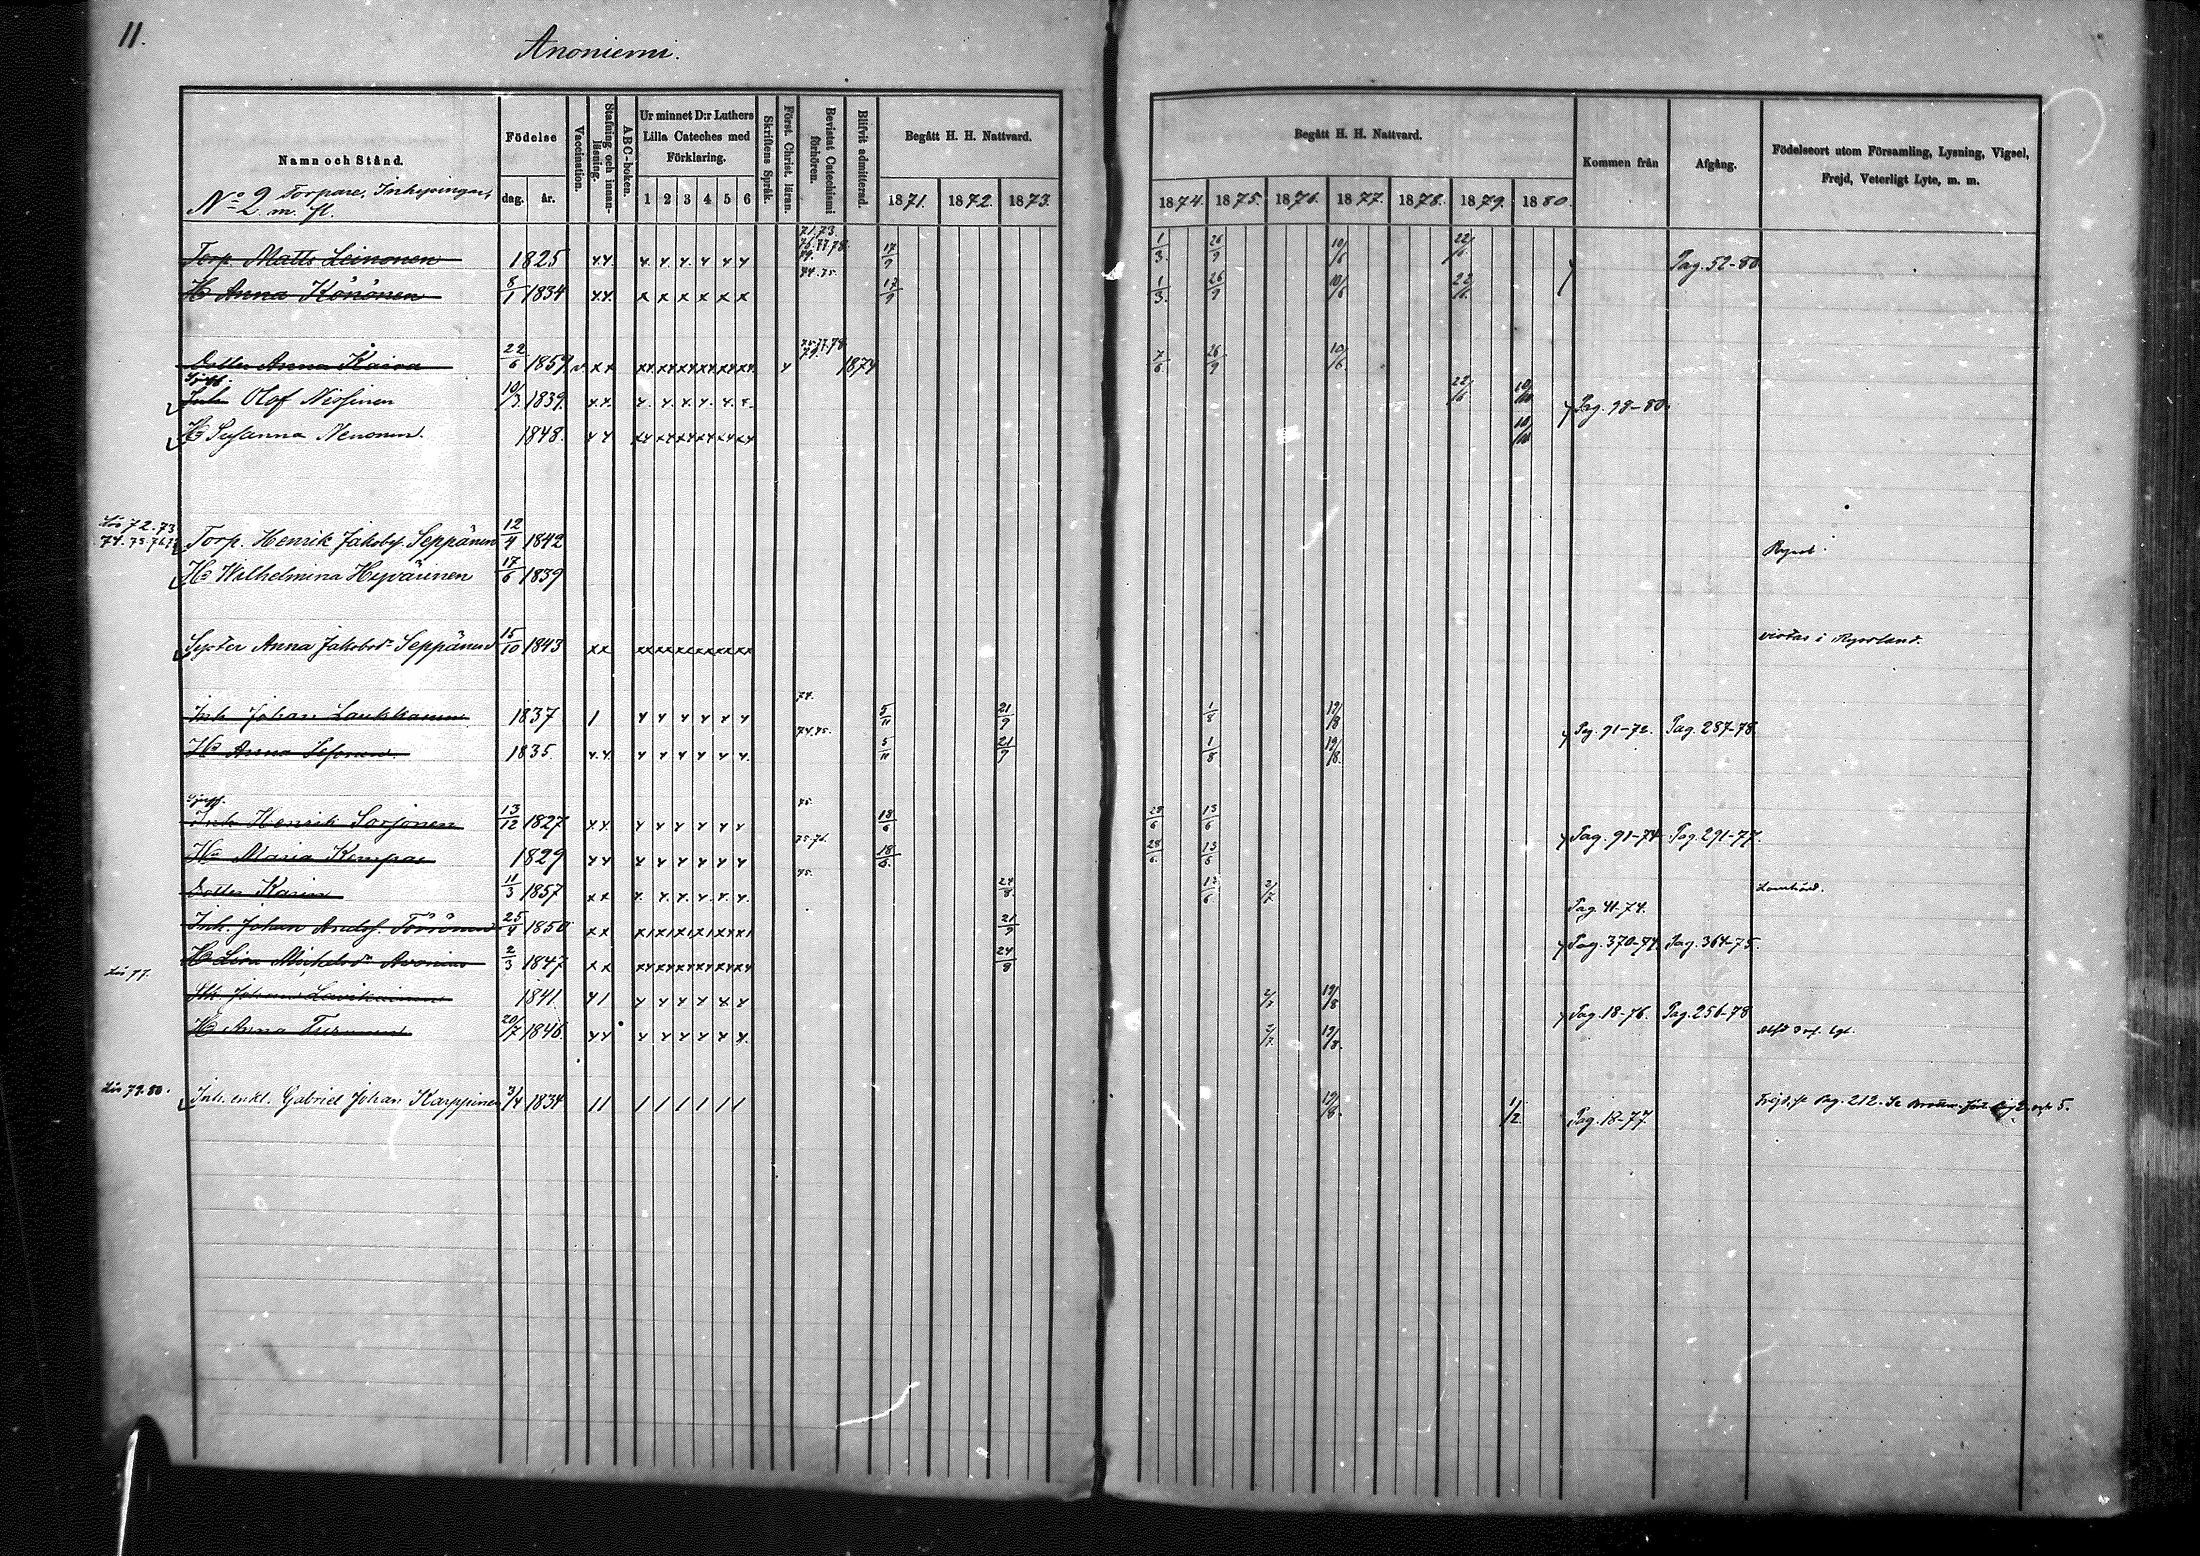 11.
Anoniemi.
Namn och Stånd.
Födelse
dag.
år.
Vaccination.
Stafning och innanläsning.
ABC-boken.
Ur minnet D:r Luthers Lilla Cateches med Förklaring.
1 2 3 4 5 6
Skriftens Språk.
Först. Christ. läran.
Bevistat Catechismi förhören.
Blifvit admitterad.
Begått H. H. Nattvard.
1871. 1872. 1873.
Begått H. H. Nattvard.
1874. 1875. 1876. 1877. 1878. 1879. 1880.
Kommen från
Afgång.
Födelseort utom Församling, Lysning, Vigsel, Frejd, Veterligt Lyte, m. m.
No 2 Torpare, Inhysingar, m. fl.
Torp. Matts Leinonen 1825 17/9 1/3. 26/9 10/6 22/6 Pag. 52-80
Hu Anna Könönen 8/1 1834 74.75. 17/9 1/3. 26/9 10/6 22/6
Dotter Anna Kaisa 22/6 1859 1874 7/6 26/9 10/6
Inh. Olof Nissinen 10/3. 1839. 22/6 Pag. 98-80.
Hu Susanna Nenonen. 1848.
72.73
Torp. Henrik Jakobsf. Seppänen 12/4 1842
Hu Wilhelmina Hyvärinen 17/6 1839
Syster Anna Jakobsdr Seppänen 15/10 1843 vistas i Ryssland.
Inh. Johan Laukkanen 1837 74. 5/11 21/9 1/8 19/8 Pag. 91-72. Pag. 287-78
Hu Anna 1835. 74.75. 5/11 21/9 1/8 19/8.
Inh Henrik Sorjonen 13/12 1827 75. 18/6 28/6 13/6 Pag. 91-74 Pag. 291-77.
Hu Maria Kemppa 1829 75-76. 18/6. 28/6. 13/6
Dotter Karin 11/3 1857 75. 24/8. 13/6 2/7 Pag. 41-74.
Inh. Johan Andersf. Törönen 25/4 1850 21/9 Pag. 370-74. Pag. 364-75.
Hu Lisa Michelsdr 2/3 1847 24/8
77.
Johan 1841 2/7 19/8 Pag. 18-76. Pag. 256-78
Hu Anna Turunen 20/7 1846. 2/7. 19/8.
79.80.
Inh. enkl. Gabriel Johan Karppinen 3/4 1834 19/8. 11/2. Pag. 18-77. Pag. 212.